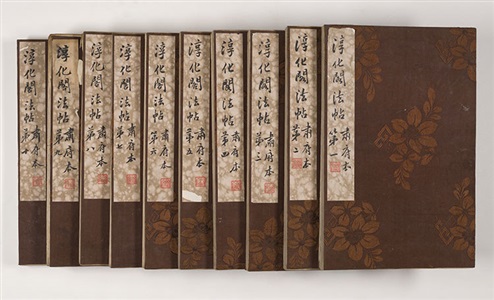 淳化閣法帖 肅府本 第一
淳化閣法帖 肅府本 第二
淳化閣法帖 肅府本 第三
淳化閣法帖 肅府本 第四
淳化閣法帖 肅府本 第五
淳化閣法帖 肅府本 第六
淳化閣法帖 肅府本 第七
淳化閣法帖 肅府本 第八
淳化閣法帖 肅府本 第九
淳化閣法帖 肅府本 第十